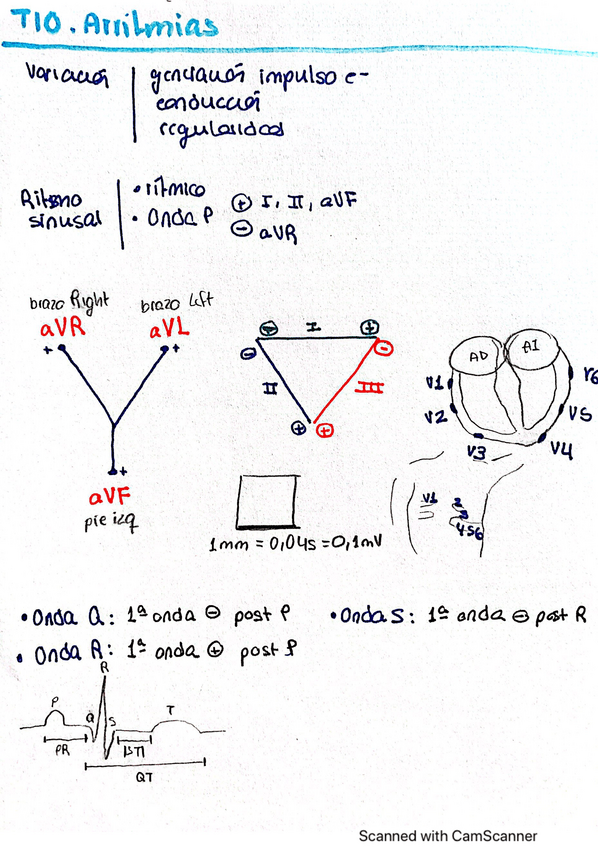 T10. Arritmias
Variación
generación impulso e-
conducción
regularidad
Ritmo sinusal
• rítmico
• Onda P
⊕ I, II, aVF
⊖ aVR
brazo Right
aVR
+
brazo left
aVL
+
+
aVF
pie izq
I
⊕
⊖
⊖
II
III
⊕
⊕
AD
AI
V1
V2
V3
V4
V5
V6
V1
2
3
4 5 6
1mm = 0,04s = 0,1mV
• Onda Q: 1ª onda ⊖ post P
• Onda S: 1ª onda ⊖ post R
• Onda R: 1ª onda ⊕ post P
P
Q
R
S
T
PR
ST
QT
Scanned with CamScanner